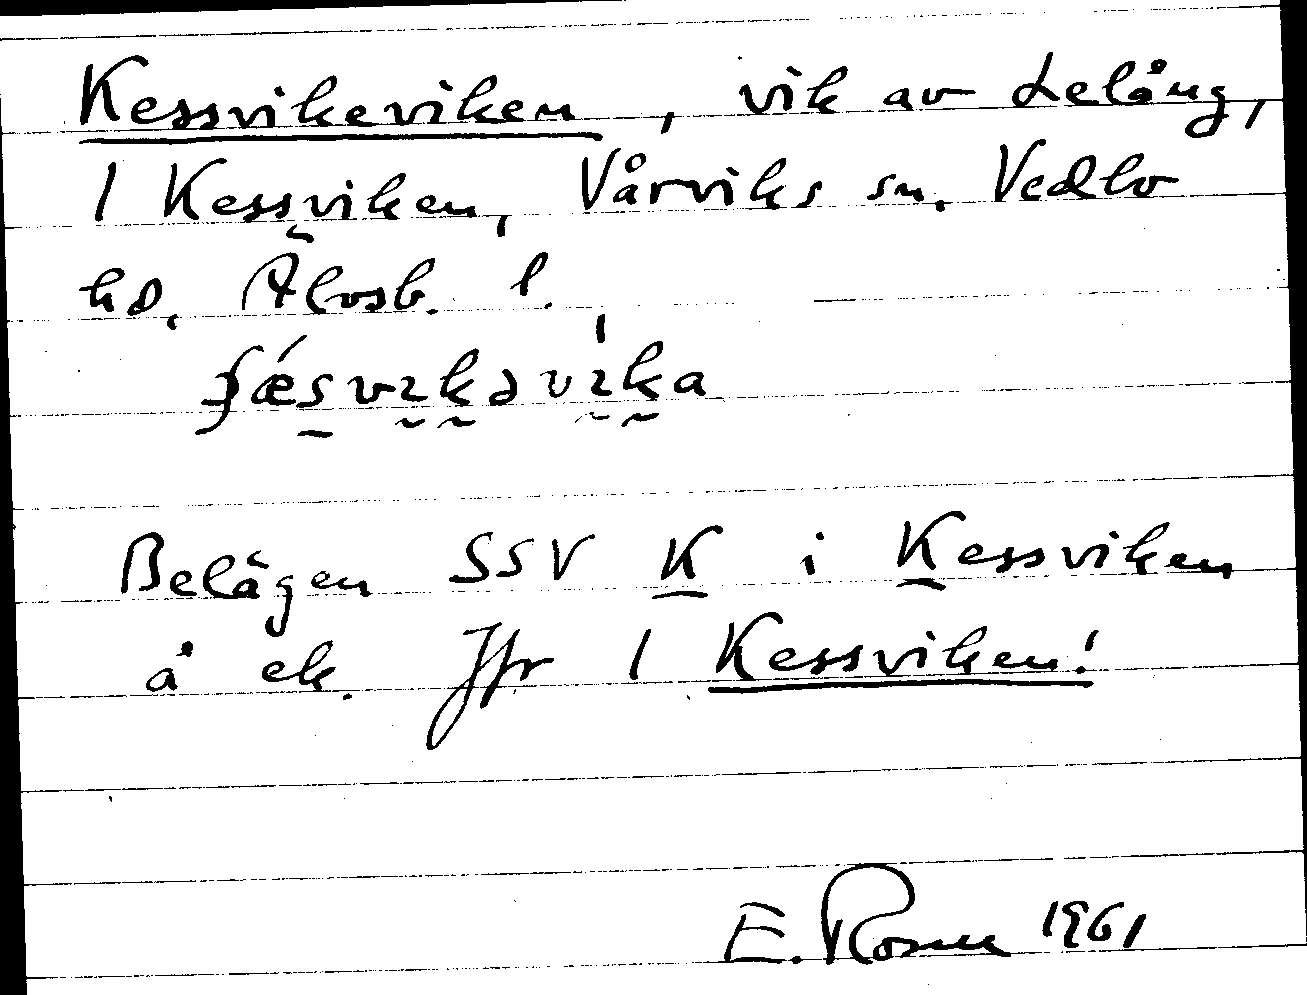 Kessvikeviken, vik av Lelång,
1 Kessviken, Vårviks sn. Vedbo
hd, Älvsb. l.
Belägen SSV K i Kessviken
å ek. Jfr 1 Kessviken!
E. Rosell 1961